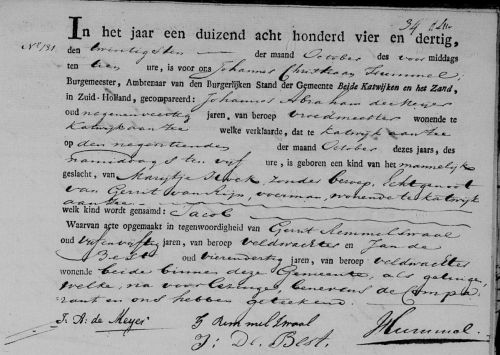 34
In het jaar een duizend acht honderd vier en dertig,
Nº 131. den twintigsten der maand October des voor middags
ten tien ure, is voor ons Johannes Christiaan Hummel,
Burgemeester, Ambtenaar van den Burgerlijken Stand der Gemeente Beide Katwijken en het Zand,
in Zuid-Holland, gecompareerd: Johannes Abraham de Meijer
oud negenenveertig jaren, van beroep vroedmeester wonende te
Katwijk aan Zee welke verklaarde, dat te Katwijk aan Zee
op den negentienden der maand October dezes jaars, des
namiddags ten vijf ure, is geboren een kind van het mannelijk
geslacht, van Marijtje zonder beroep, Echtgenoot
van Gerrit van Rijn, voerman, wonende te Katwijk
aan Zee
welk kind werdt genaamd: Jacob
Waarvan acte opgemaakt in tegenwoordigheid van Gerrit Remmelswaal
oud vijfenvijftig jaren, van beroep veldwachter en Jan de
Best oud vierendertig jaren, van beroep veldwachter
wonende beide binnen deze Gemeente, als getuigen,
welke, na voorlezing, benevens de Compa-
rant en ons hebben geteekend.
J. A. de Meijer G Remmelswaal
J: De Best. JHummel.